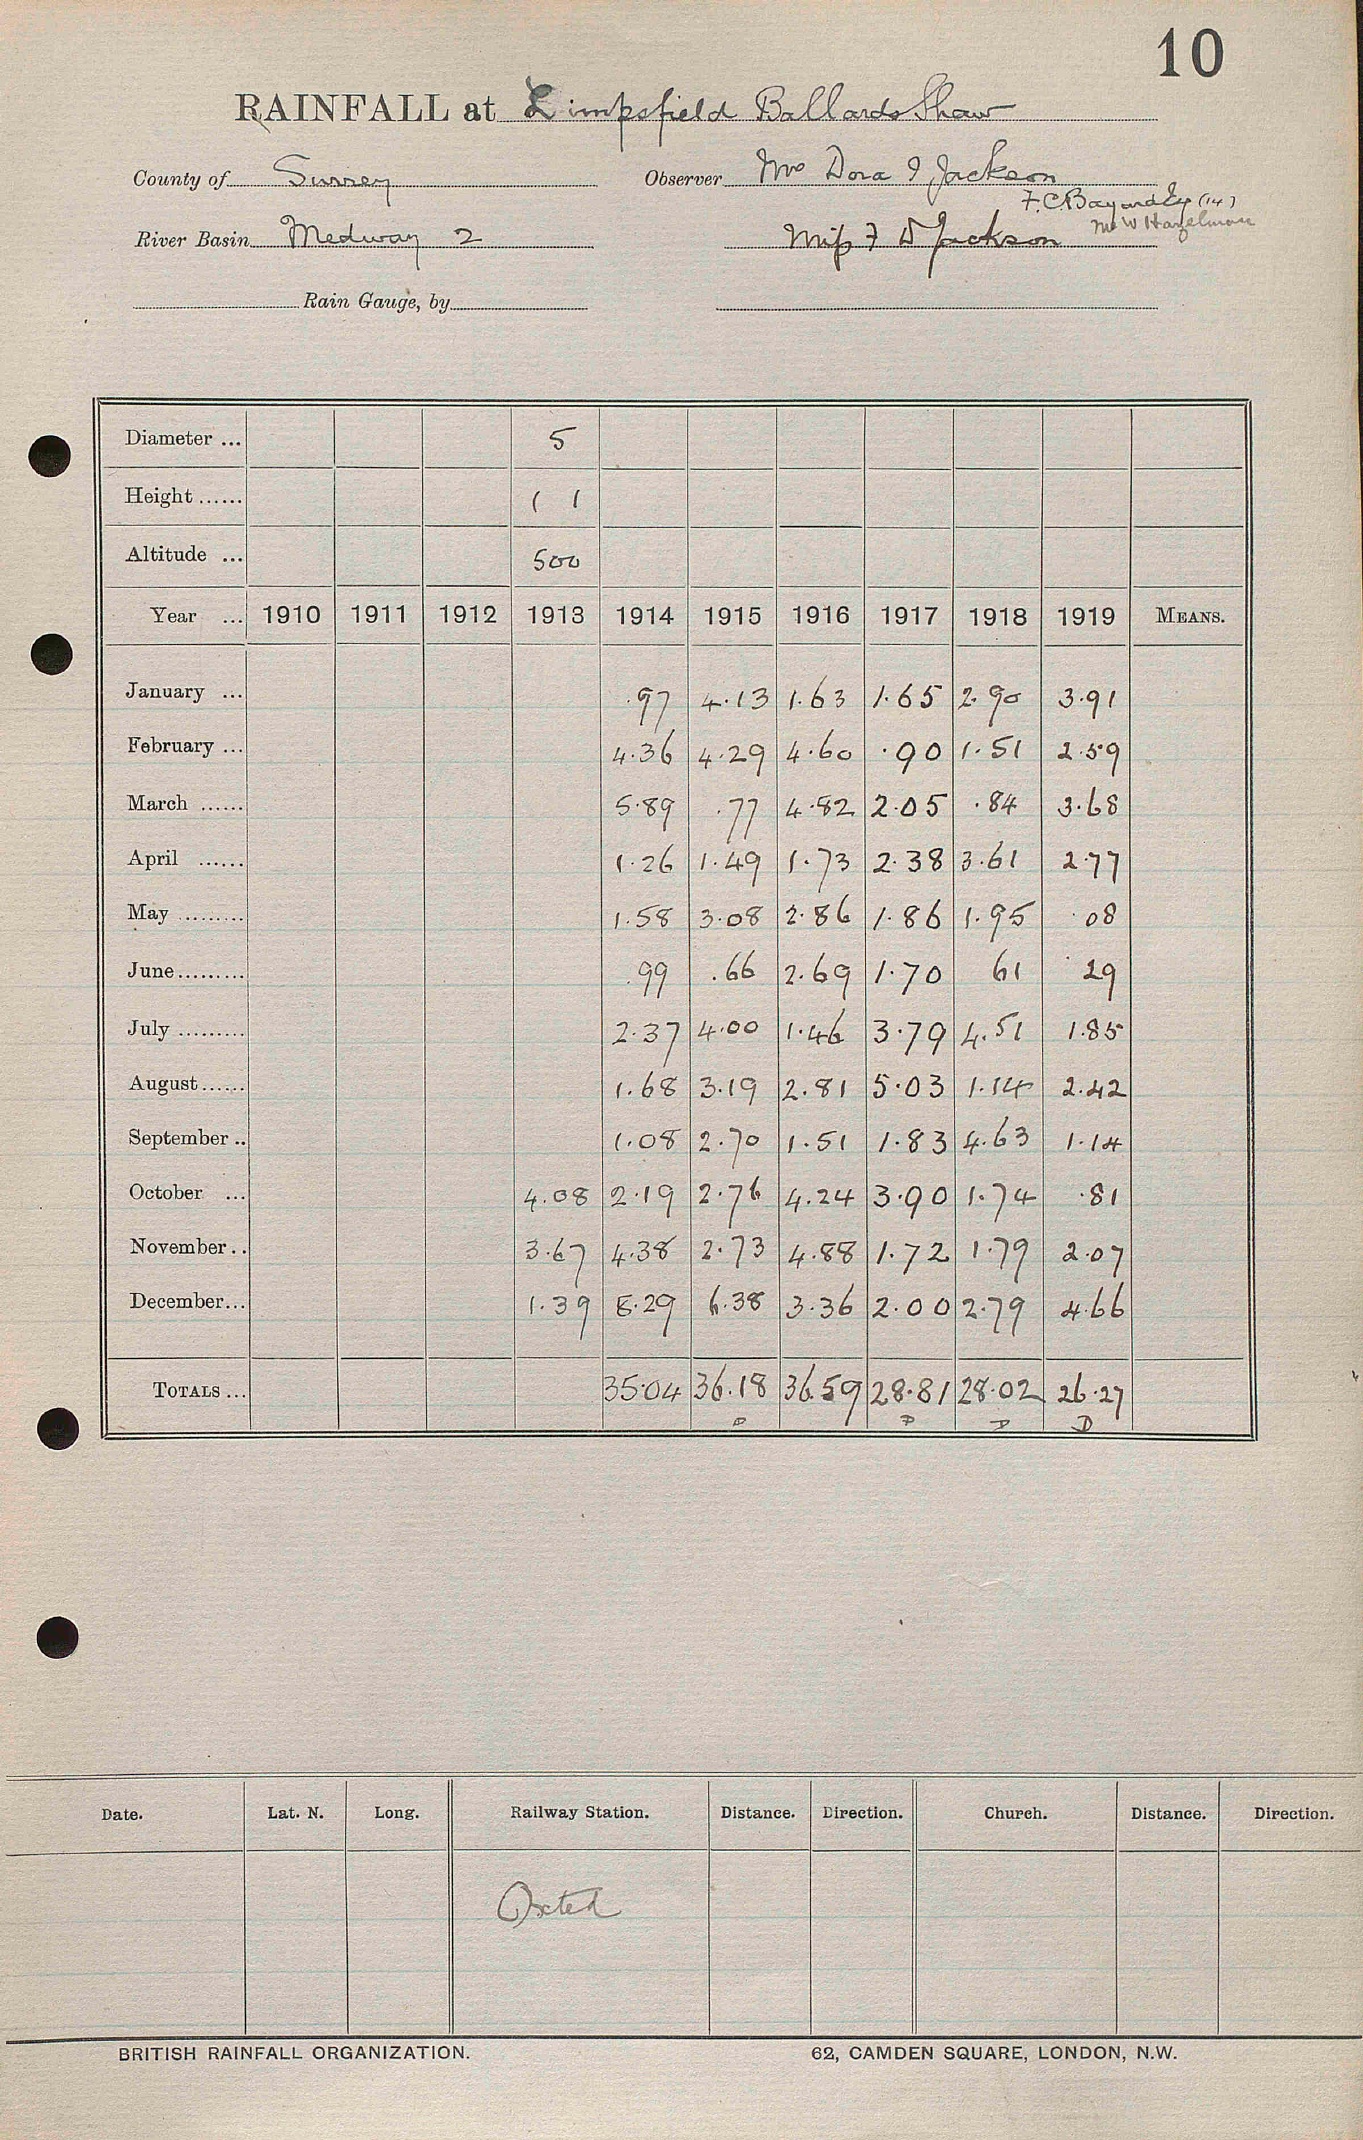 10
RAINFALL at Limpsfield Ballards Shaw
County of Surrey Observer Mrs Dora I Jackson
F. C. Bayard Esq (14)
River Basin Medway 2 Miss F D Jackson Mr W Hazelman
Rain Gauge, by
Diameter ... 5
Height ...... 1 1
Altitude ... 500
Year ... 1910 1911 1912 1913 1914 1915 1916 1917 1918 1919 MEANS.
January ... .97 4.13 1.63 1.65 2.90 3.91
February ... 4.36 4.29 4.60 .90 1.51 2.59
March ...... 5.89 .77 4.82 2.05 .84 3.68
April ...... 1.26 1.49 1.73 2.38 3.61 2.77
May ......... 1.58 3.08 2.86 1.86 1.95 .08
June......... .99 .66 2.69 1.70 61 .29
July ......... 2.37 4.00 1.46 3.79 4.51 1.85
August...... 1.68 3.19 2.81 5.03 1.14 2.42
September .. 1.08 2.70 1.51 1.83 4.63 1.14
October ... 4.08 2.19 2.76 4.24 3.90 1.74 .81
November .. 3.67 4.38 2.73 4.88 1.72 1.79 2.07
December... 1.39 8.29 6.38 3.36 2.00 2.79 4.66
TOTALS ... 35.04 36.18 36.59 28.81 28.02 26.27
D D D D
Date. Lat. N. Long. Railway Station. Distance. Direction. Church. Distance. Direction.
Oxted
BRITISH RAINFALL ORGANIZATION. 62, CAMDEN SQUARE, LONDON, N.W.